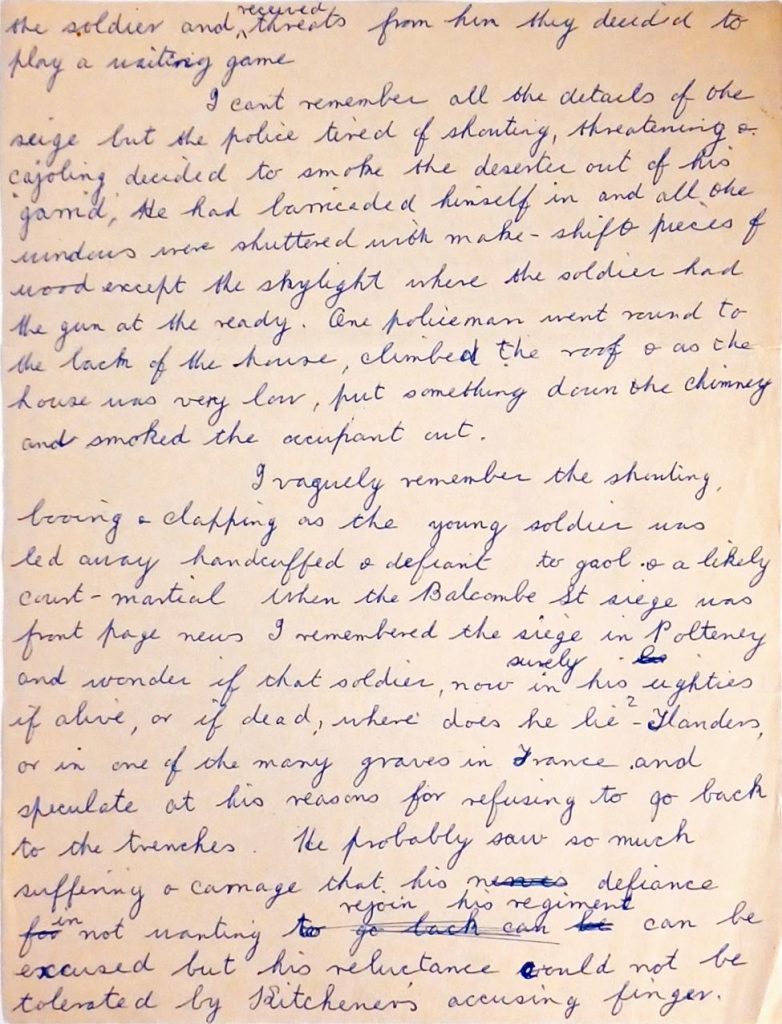 the soldier and received threats from him they decided to
play a waiting game
I cant remember all the details of the
seige but the police tired of shouting, threatening &
cajoling decided to smoke the deserter out of his
He had barricaded himself in and all the
windows were shuttered with make-shift pieces of
wood except the skylight where the soldier had
the gun at the ready. One policeman went round to
the back of the house, climbed the roof & as the
house was very low, put something down the chimney
and smoked the occupant out.
I vaguely remember the shouting,
booing & clapping as the young soldier was
led away handcuffed & defiant to gaol & a likely
court-martial When the Balcombe St siege was
front page news I remembered the siege in Polteney
and wonder if that soldier, now surely in his eighties
if alive, or if dead, where does he lie? - Flanders,
or in one of the many graves in France and
speculate at his reasons for refusing to go back
to the trenches. He probably saw so much
suffering & carnage that his nerves defiance
for in not wanting to go back can be rejoin his regiment can be
excused but his reluctance could not be
tolerated by Kitchener's accusing finger.